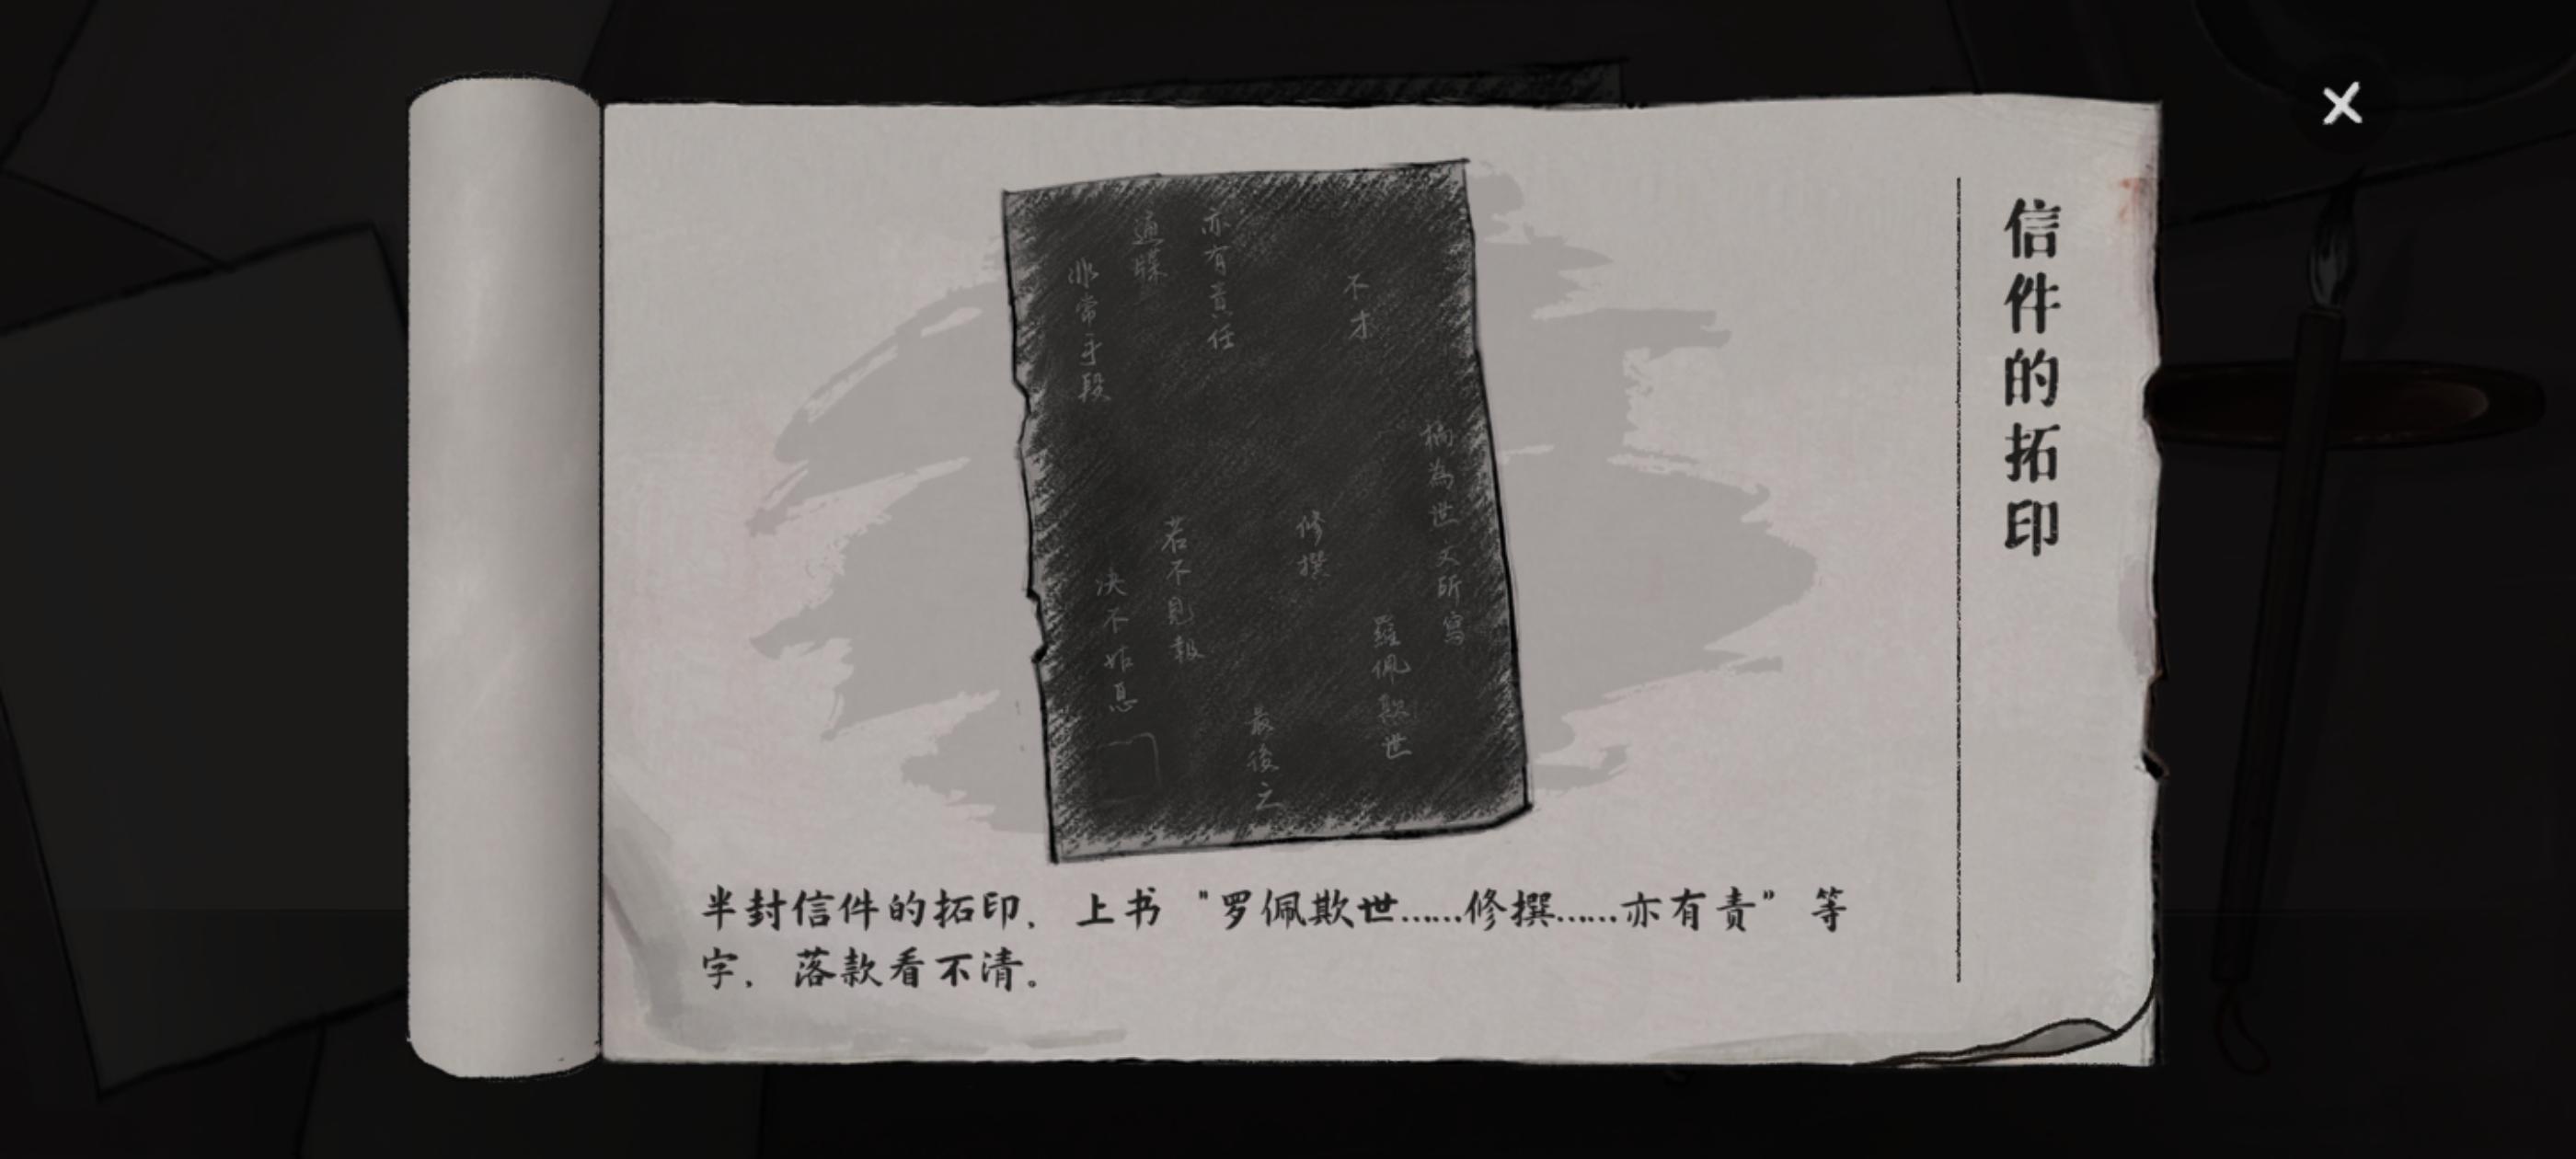 信件的拓印
不才
為世文所寫
羅佩欺世
修撰
最後之
亦有責任
若不見報
通牒
決不姑息
非常手段
半封信件的拓印，上书“罗佩欺世……修撰……亦有责”等
字，落款看不清。